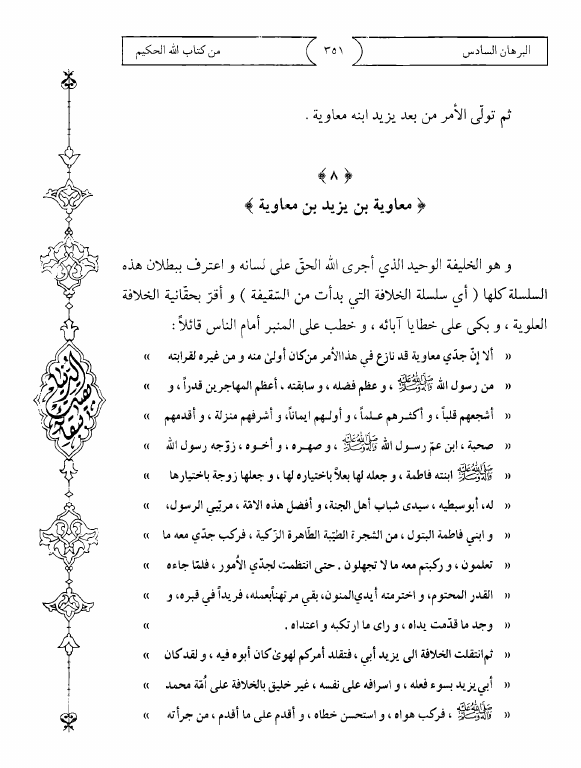 البرهان السادس ٣٥١ من كتاب الله الحكيم
ثم تولّى الأمر من بعد يزيد ابنه معاوية .
﴿ ٨ ﴾
﴿ معاوية بن يزيد بن معاوية ﴾
و هو الخليفة الوحيد الذي أجرى الله الحقّ على لسانه و اعترف ببطلان هذه
السلسلة كلها ( أي سلسلة الخلافة التي بدأت من السّقيفة ) و أقرّ بحقانية الخلافة
العلوية ، و بكى على خطايا آبائه ، و خطب على المنبر أمام الناس قائلاً :
« ألا إنّ جدّي معاوية قد نازع في هذا الأمر من كان أولىٰ منه و من غيره لقرابته »
« من رسول الله ﷺ ، و عظم فضله ، و سابقته ، أعظم المهاجرين قدراً ، و »
« أشجعهم قلباً ، و أكثرهم علماً ، و أولهم ايماناً ، و أشرفهم منزلة ، و أقدمهم »
« صحبة ، ابن عمّ رسول الله ﷺ ، و صهره ، و أخوه ، زوّجه رسول الله »
« ﷺ ابنته فاطمة ، و جعله لها بعلاً باختياره لها ، و جعلها زوجة باختيارها »
« له، أبو سبطيه ، سيدى شباب أهل الجنة، و أفضل هذه الامّة ، مربّيي الرسول، »
« و ابني فاطمة البتول ، من الشجرة الطيّبة الطّاهرة الزّكية ، فركب جدّي معه ما »
« تعلمون ، و ركبتم معه ما لا تجهلون . حتى انتظمت لجدّي الأمور ، فلمّا جاءه »
« القدر المحتوم، و اخترمته أيدي المنون، بقي مرتهناً بعمله، فريداً في قبره، و »
« وجد ما قدّمت يداه ، و راى ما ارتكبه و اعتداه . »
« ثم انتقلت الخلافة الى يزيد أبي ، فتقلد أمركم لهوىٰ كان أبوه فيه ، و لقد كان »
« أبي يزيد بسوء فعله ، و اسرافه على نفسه ، غير خليق بالخلافة على اُمّة محمد »
« ﷺ ، فركب هواه ، و استحسن خطاه ، و أقدم على ما أقدم ، من جرأته »